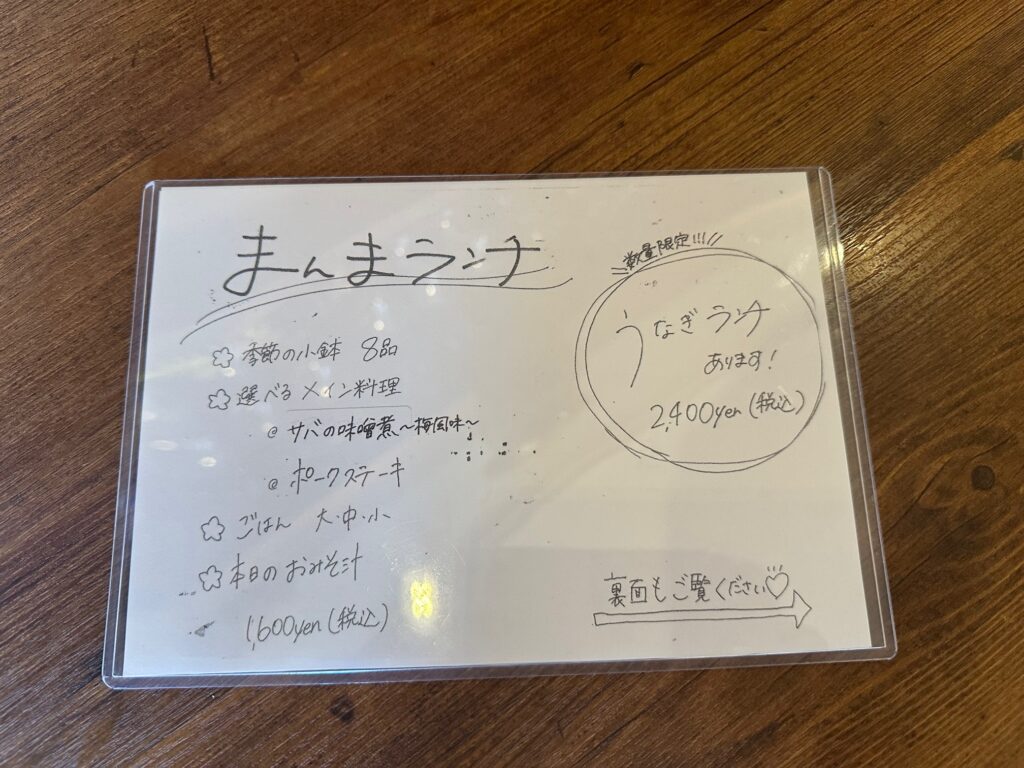 まんまランチ
季節の小鉢 8品
選べる メイン料理
@ サバの味噌煮〜梅風味〜
@ ポークステーキ
ごはん 大・中・小
本日の おみそ汁
1,600yen (税込)
数量限定!!!
うなぎランチ
あります!
2,400yen (税込)
裏面もご覧ください♡